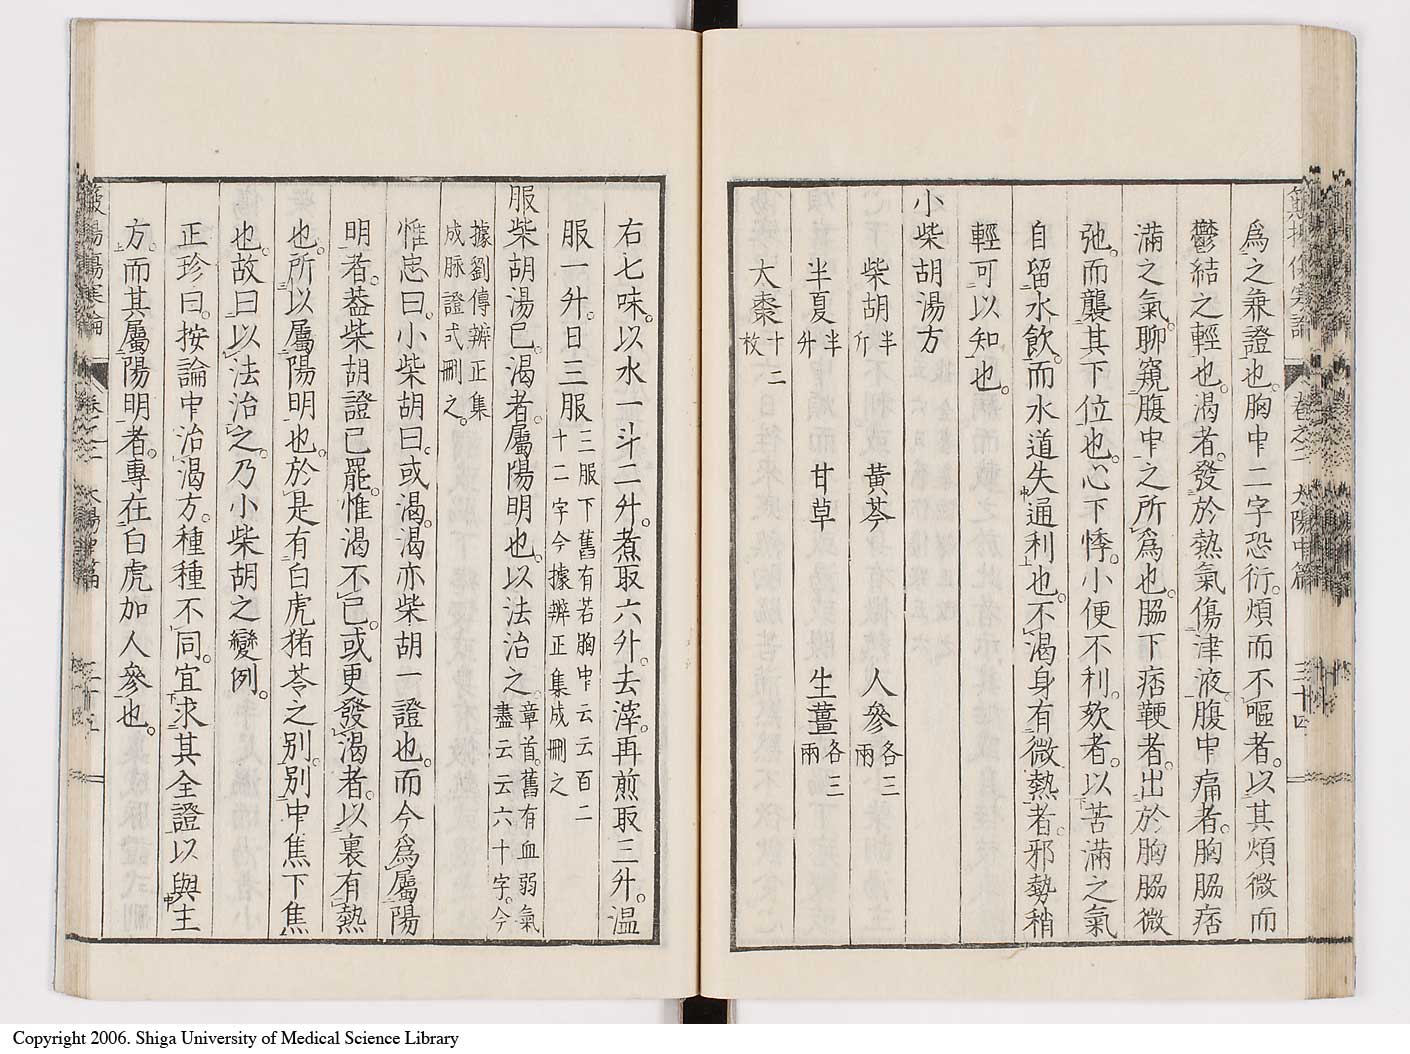 爲之兼證也。胸中二字恐衍。煩而不嘔者。以其煩微而
鬱結之輕也。渴者。發於熱氣傷津液。腹中痛者。胸脇痞
滿之氣。聊窺腹中之所爲也。脇下痞鞕者。出於胸脇微
弛。而襲其下位也。心下悸。小便不利。欬者。以苦滿之氣
自留水飲。而水道失通利也。不渴身有微熱者。邪勢稍
輕可以知也。
小柴胡湯方
柴胡半斤 黃芩 人參各三兩
半夏半升 甘草 生薑各三兩
大棗十二枚
右七味。以水一斗二升。煮取六升。去滓。再煎取三升。温
服一升。日三服三服下舊有若胸中云云百二十二字今據辨正集成刪之
服柴胡湯已。渴者。屬陽明也。以法治之。章首。舊有血弱氣盡云云六十字。今
據劉傳辨正集成脉證式刪之。
惟忠曰。小柴胡曰。或渴。渴亦柴胡一證也。而今爲屬陽
明者。蓋柴胡證已罷。惟渴不已。或更發渴者。以裏有熱
也。所以屬陽明也。於是有白虎猪苓之別。別中焦下焦
也。故曰以法治之。乃小柴胡之變例。
正珍曰。按論中治渴方。種種不同。宜求其全證以與主
方。而其屬陽明者。專在白虎加人參也。
卷之二 太陽中篇 三十四